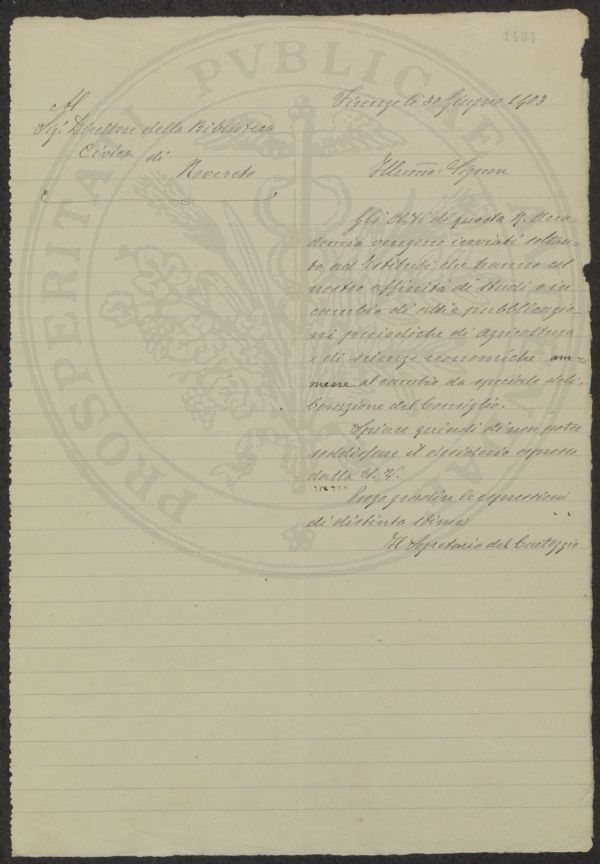 1434
PROSPERITATI PVBLICAE
Firenze li 30 Giugno 1903
Al
Sigr Direttore della Biblioteca
Civica di
Rovereto
Illmo: Signore
Gli Atti di questa R. Acca-
demia vengono inviati soltan-
to ad Istituti che hanno col
nostro affinità di studi o in
cambio di altre pubblicazio-
ni periodiche di agricoltura
e di scienze economiche am-
messe al cambio da speciale deli-
berazione del Consiglio.
Spiace quindi di non poter
soddisfare il desiderio espresso
dalla S. V.
Prego gradire le espressioni
di distinta stima
Il Segretario del Carteggio